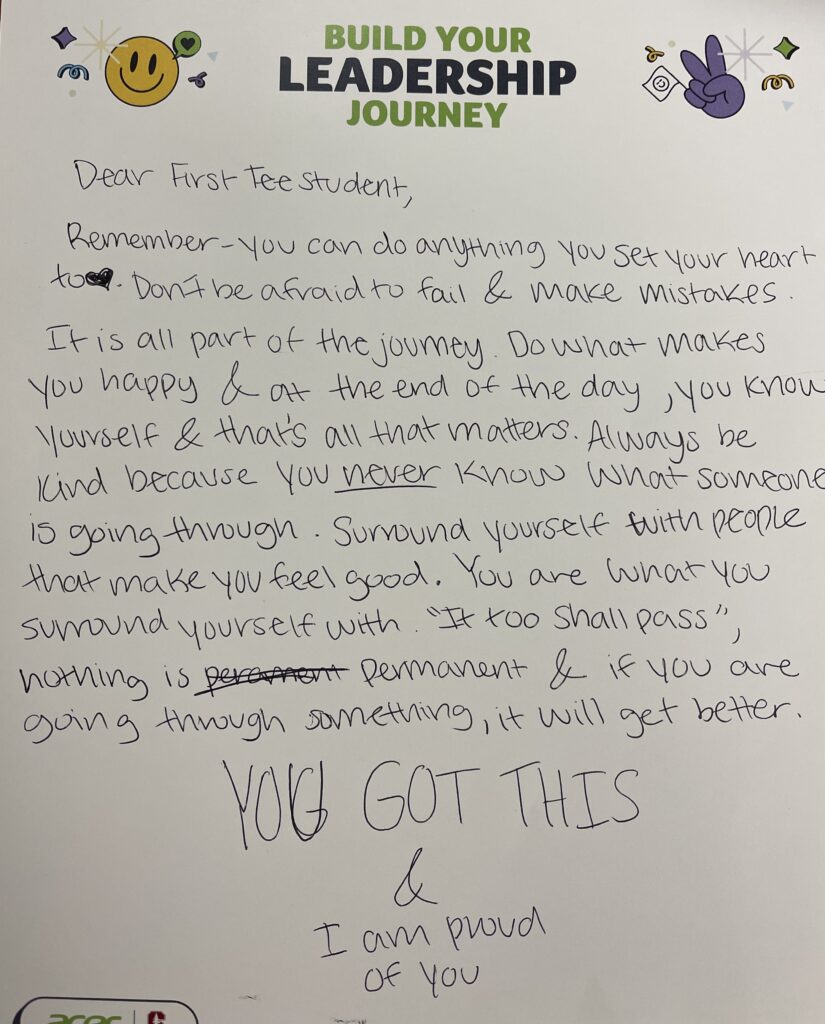 BUILD YOUR
LEADERSHIP
JOURNEY
Dear First Tee student,
Remember - you can do anything you set your heart
to♥. Don't be afraid to fail & make mistakes.
It is all part of the journey. Do what makes
you happy & at the end of the day, you know
yourself & that's all that matters. Always be
kind because you never know what someone
is going through. Surround yourself with people
that make you feel good. You are what you
surround yourself with. "It too shall pass",
nothing is perament permanent & if you are
going through something, it will get better.
YOU GOT THIS
&
I am proud
of you
acer